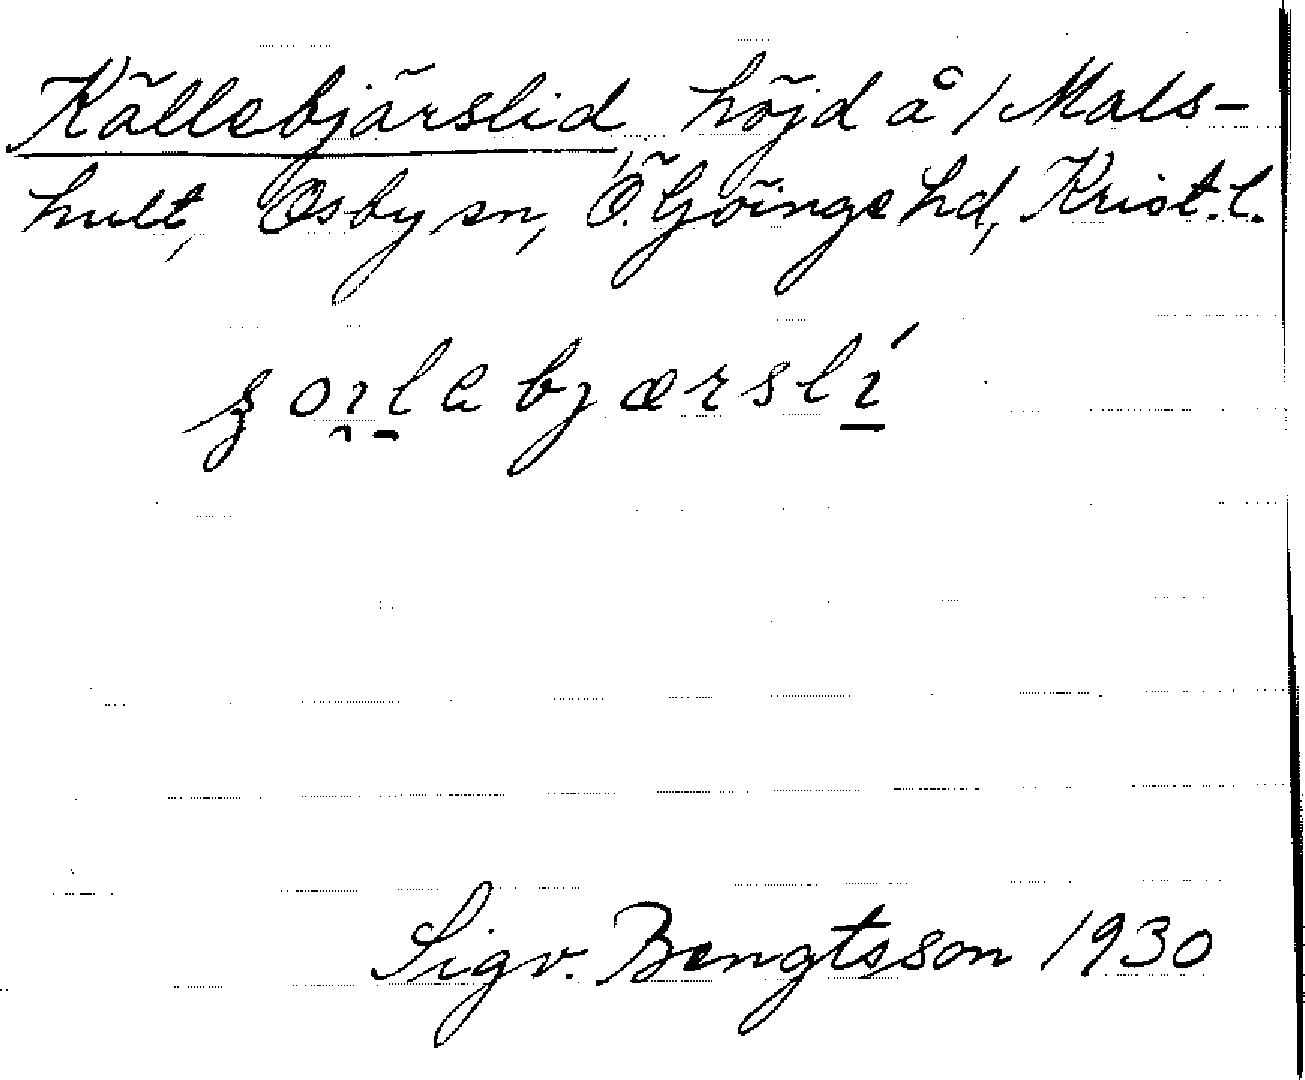 Källebjärslid höjd å 1 Mals-
hult, Osby sn, Ö. Göinge hd, Krist. l.
Sigv. Bengtsson 1930